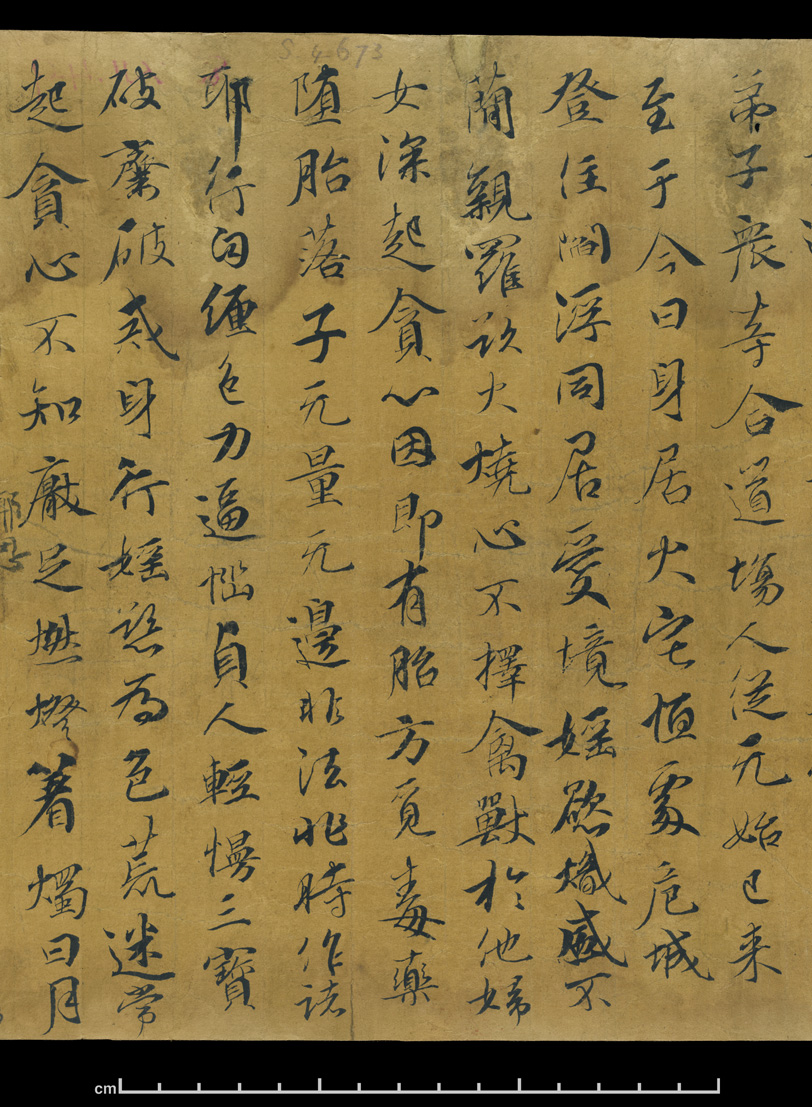 弟子眾等合道場人從无始已来
至于今日身居火宅恒處危城
登住閻浮同居愛境婬慾熾盛不
蕳親羅欲火燒心不擇禽獸於他婦
女深起貪心因即有胎方覓毒藥
墮胎落子无量无邊非法非時作諸
耶行因緾色力逼惱貞人輕慢三寶
破齋破戒身行婬慾為色荒迷常
起貪心不知厭足燃燈着燭日月
S.4673